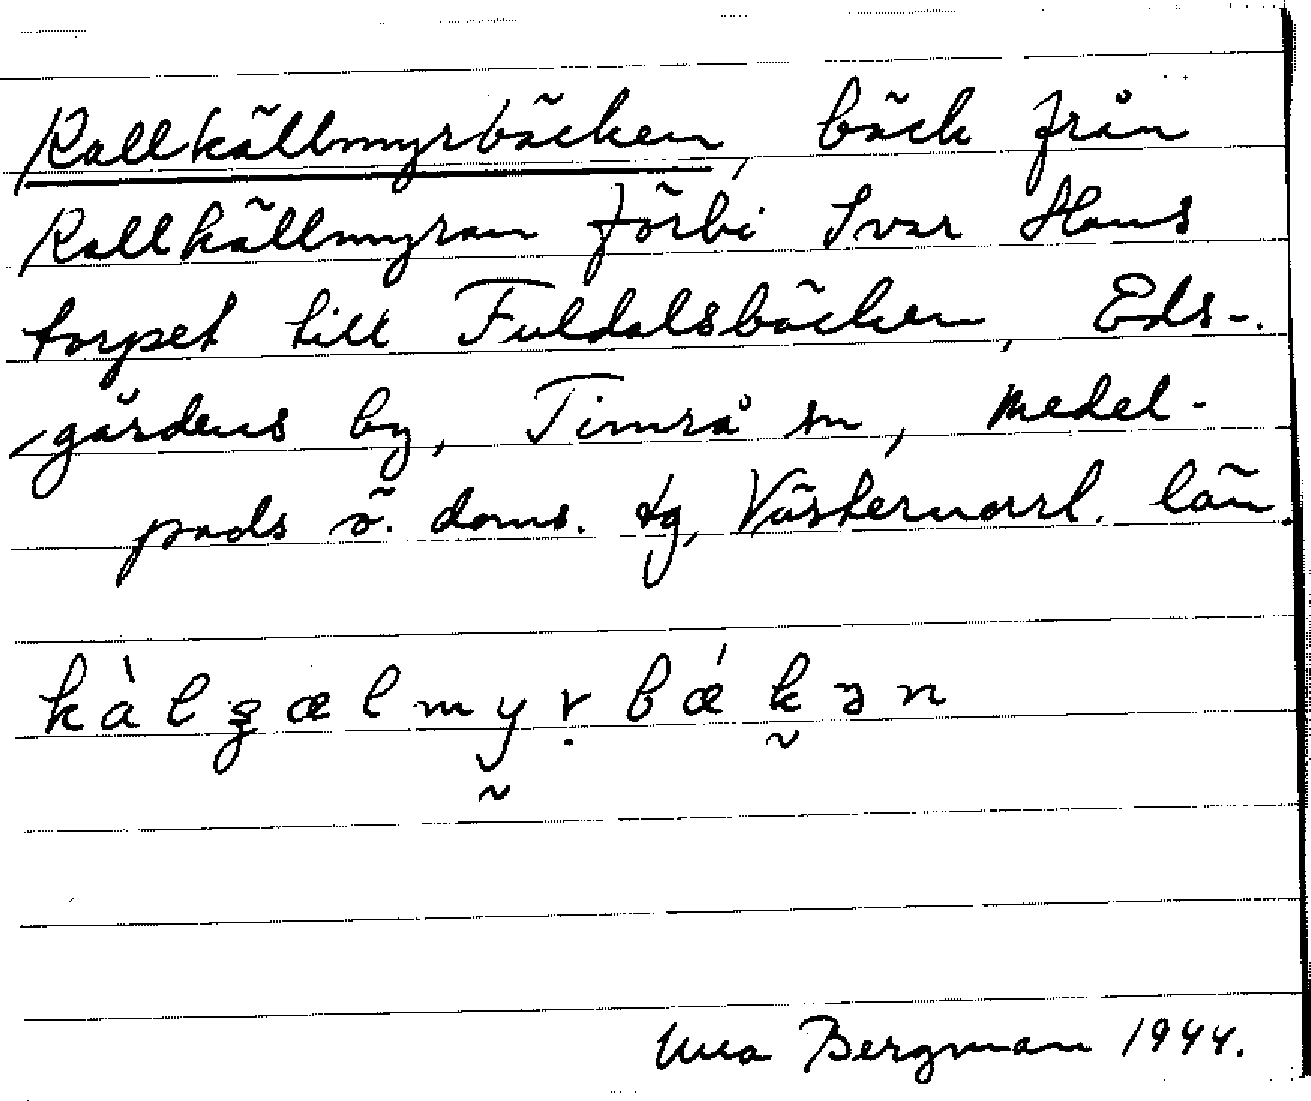 Kallkällmyrbäcken, bäck från
Kallkällmyran förbi Ivar Hans
torpet till Fuldalsbäcken, Eds-
gårdens by, Timrå sn, Medel-
pads ö. doms. tg, Västernorrl. län.
kàlgælmyṛbǽkən
Bergman 1944.